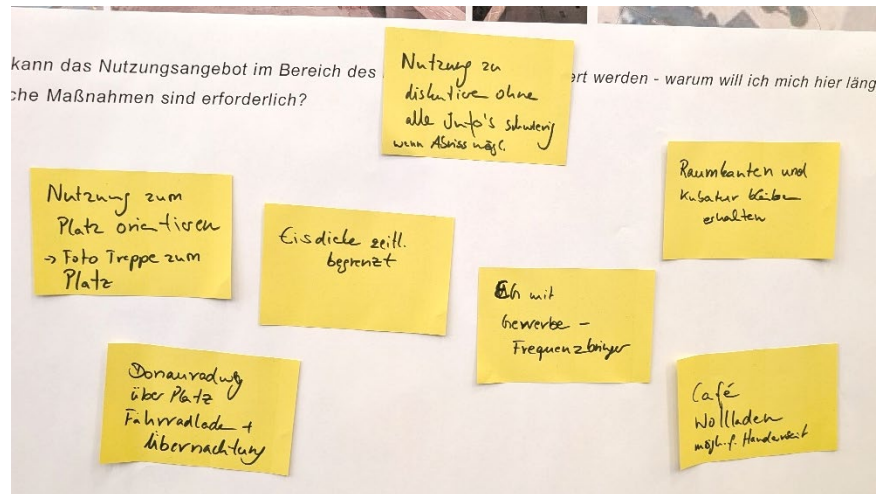 kann das Nutzungsangebot im Bereich des
ert werden - warum will ich mich hier läng
che Maßnahmen sind erforderlich?
Nutzung zu
diskutieren ohne
alle Info's schwierig
wenn Abriss mögl.
Raumkanten und
Kubatur bleiben
erhalten
Nutzung zum
Platz orientieren
-> Foto Treppe zum
Platz
Eisdiele zeitl.
begrenzt
EG mit
Gewerbe -
Frequenzbringer
Donauradweg
über Platz
Fahrradladen +
Übernachtung
Café
Wollladen
mögl. f. Handarbeit